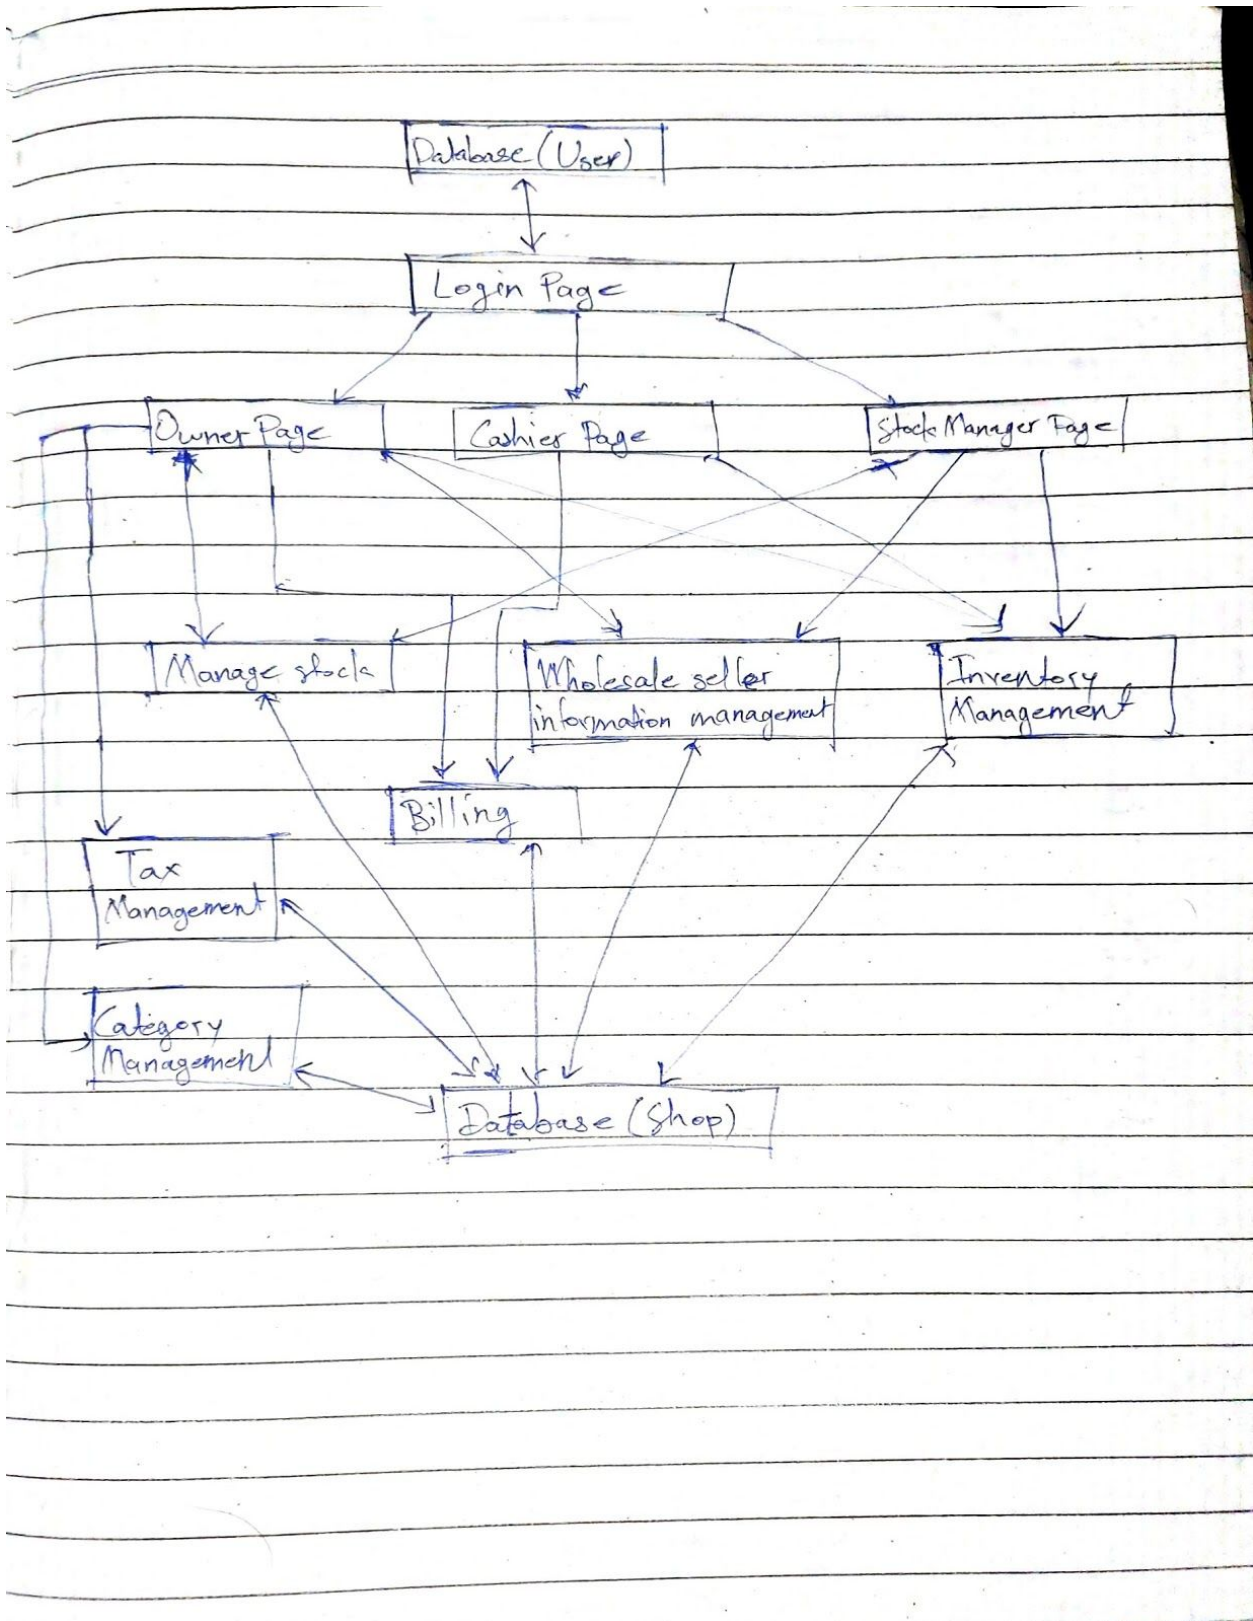 Database (User)
Login Page
Owner Page
Cashier Page
Stock Manager Page
Manage stock
Wholesale seller
information management
Inventory
Management
Billing
Tax
Management
Category
Management
Database (Shop)